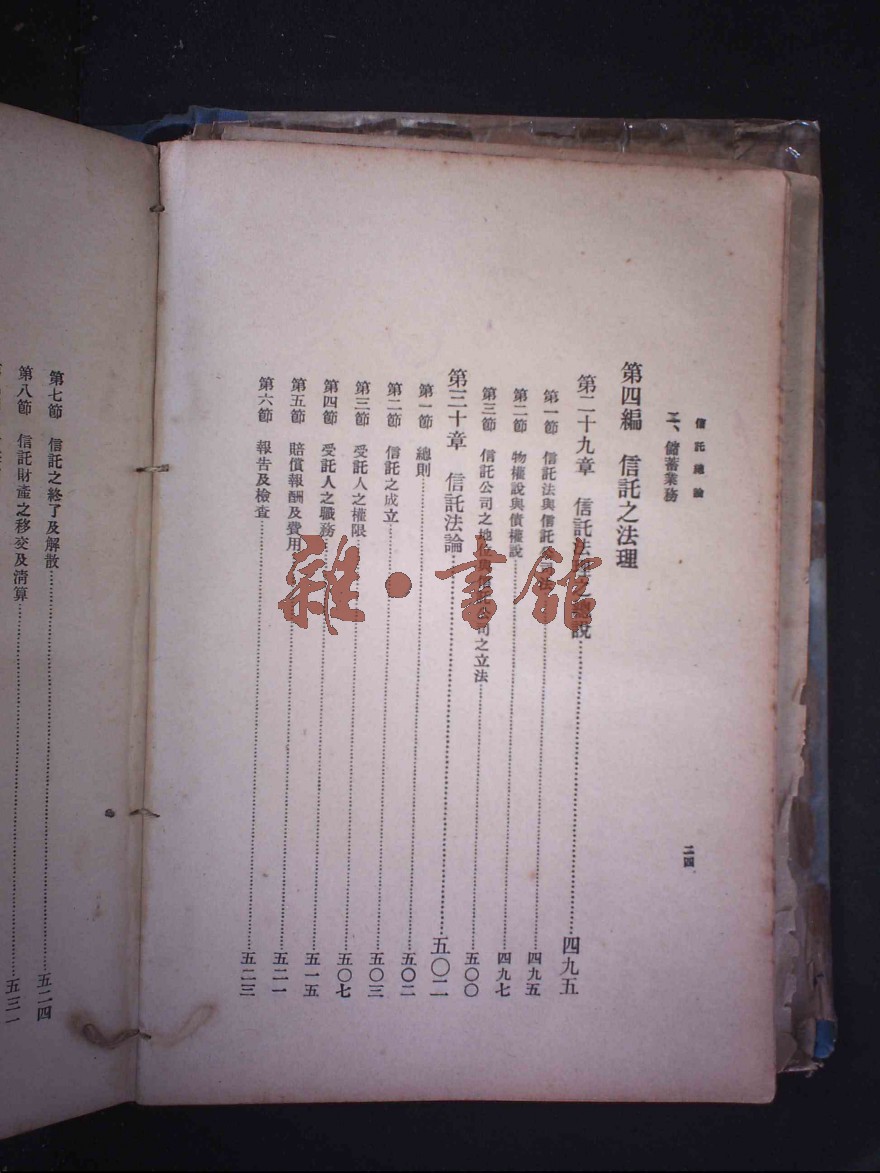 信託總論
二四
二、儲蓄業務
第四編 信託之法理
第二十九章 信託法理之總說……四九五
第一節 信託法與信託公司法……四九五
第二節 物權說與債權說……四九七
第三節 信託公司之地位與信託公司之立法……五〇〇
第三十章 信託法論……五〇二
第一節 總則……五〇二
第二節 信託之成立……五〇三
第三節 受託人之權限……五〇七
第四節 受託人之職務……五一五
第五節 賠償報酬及費用……五二一
第六節 報告及檢查……五二三
第七節 信託之終了及解散……五二四
第八節 信託財產之移交及清算……五三一
雜·書館